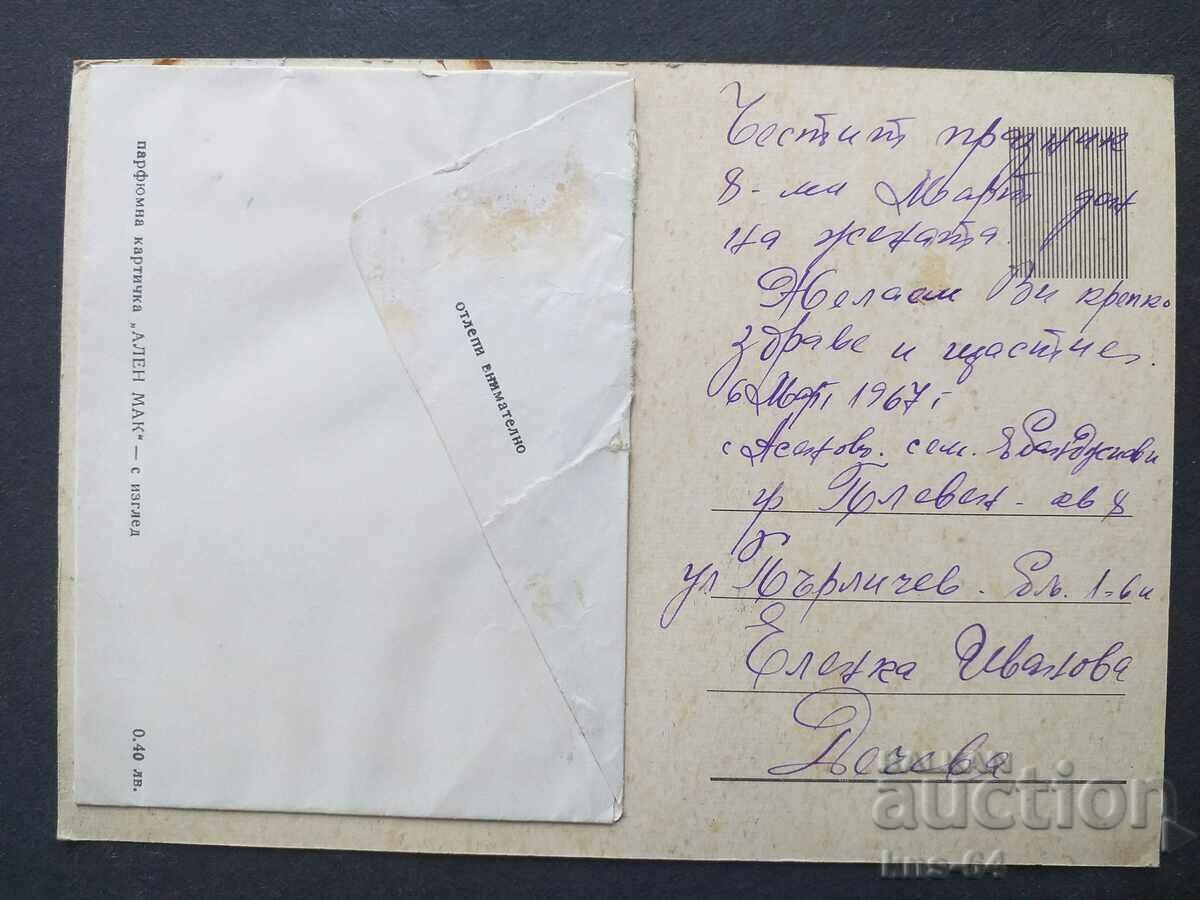 парфюмна картичка „АЛЕН МАК“ — с изглед
0.40 лв.
отлепи внимателно
Честит празник
8-ми Март ден
на жената.
Желаем Ви крепко
здраве и щастие.
6 Март 1967 г
с Асеново. сем.
гр Плевен - кв 8
ул Пърличев. бл. 1-
Еленка Иванова
Дечева
BALKAN
auction
kns-64